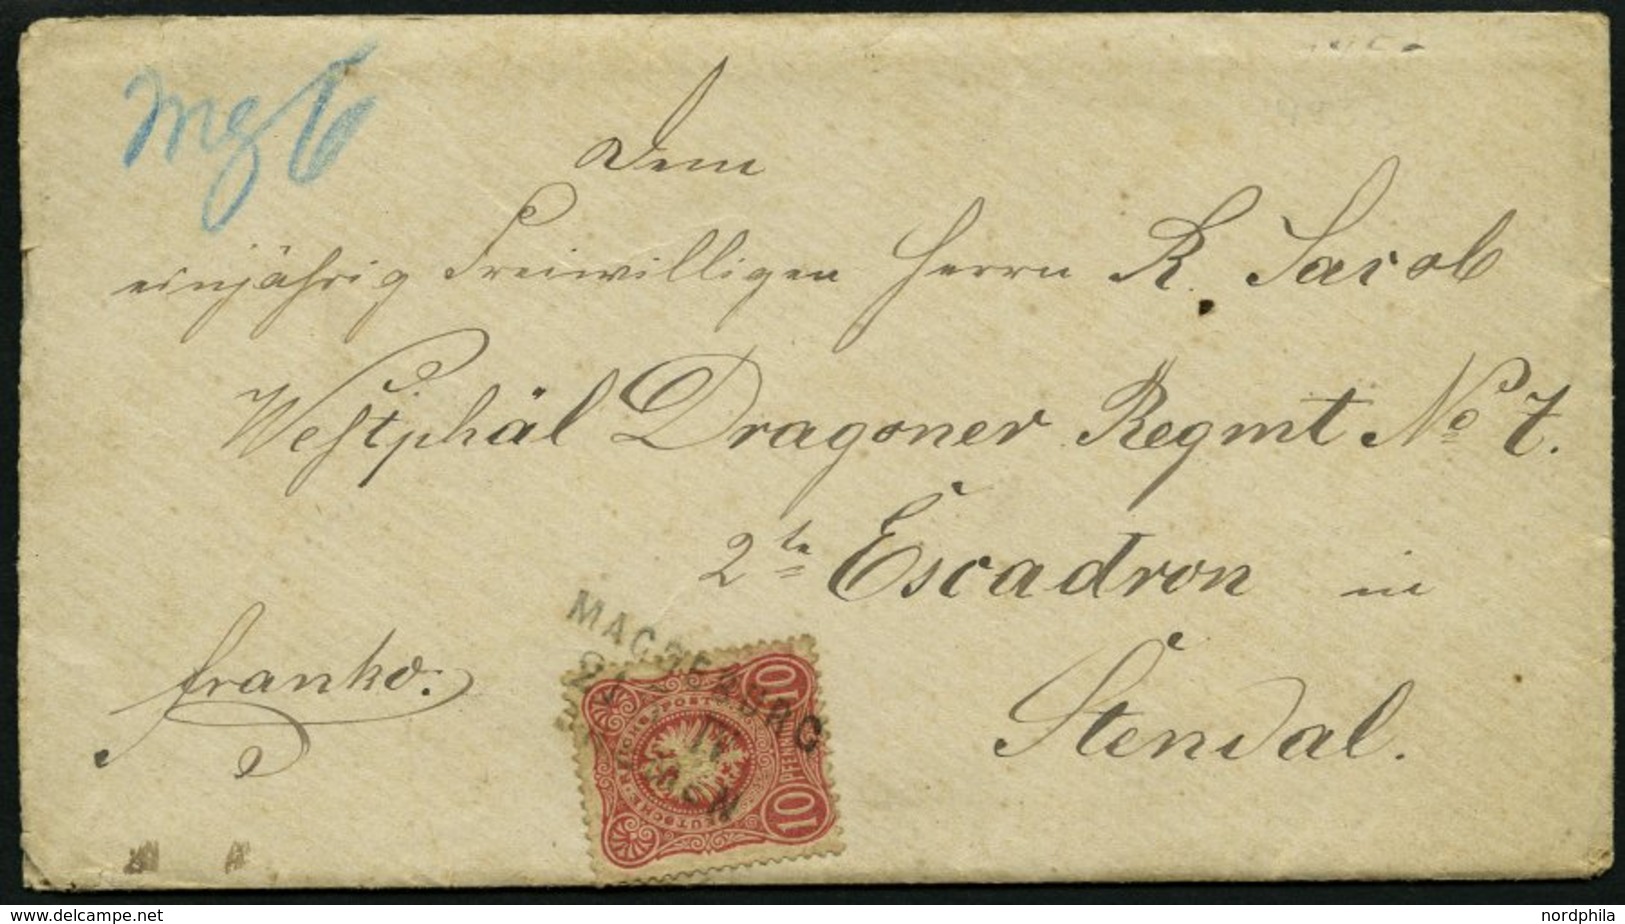 Dem
einjährig Freiwilligen Herrn R. Jacob
Westphäl Dragoner Regmt No 7.
2te Escadron in
Stendal.
franko.
MAGDEBURG
10 PFENNIG 10
delcampe.net
nordphila